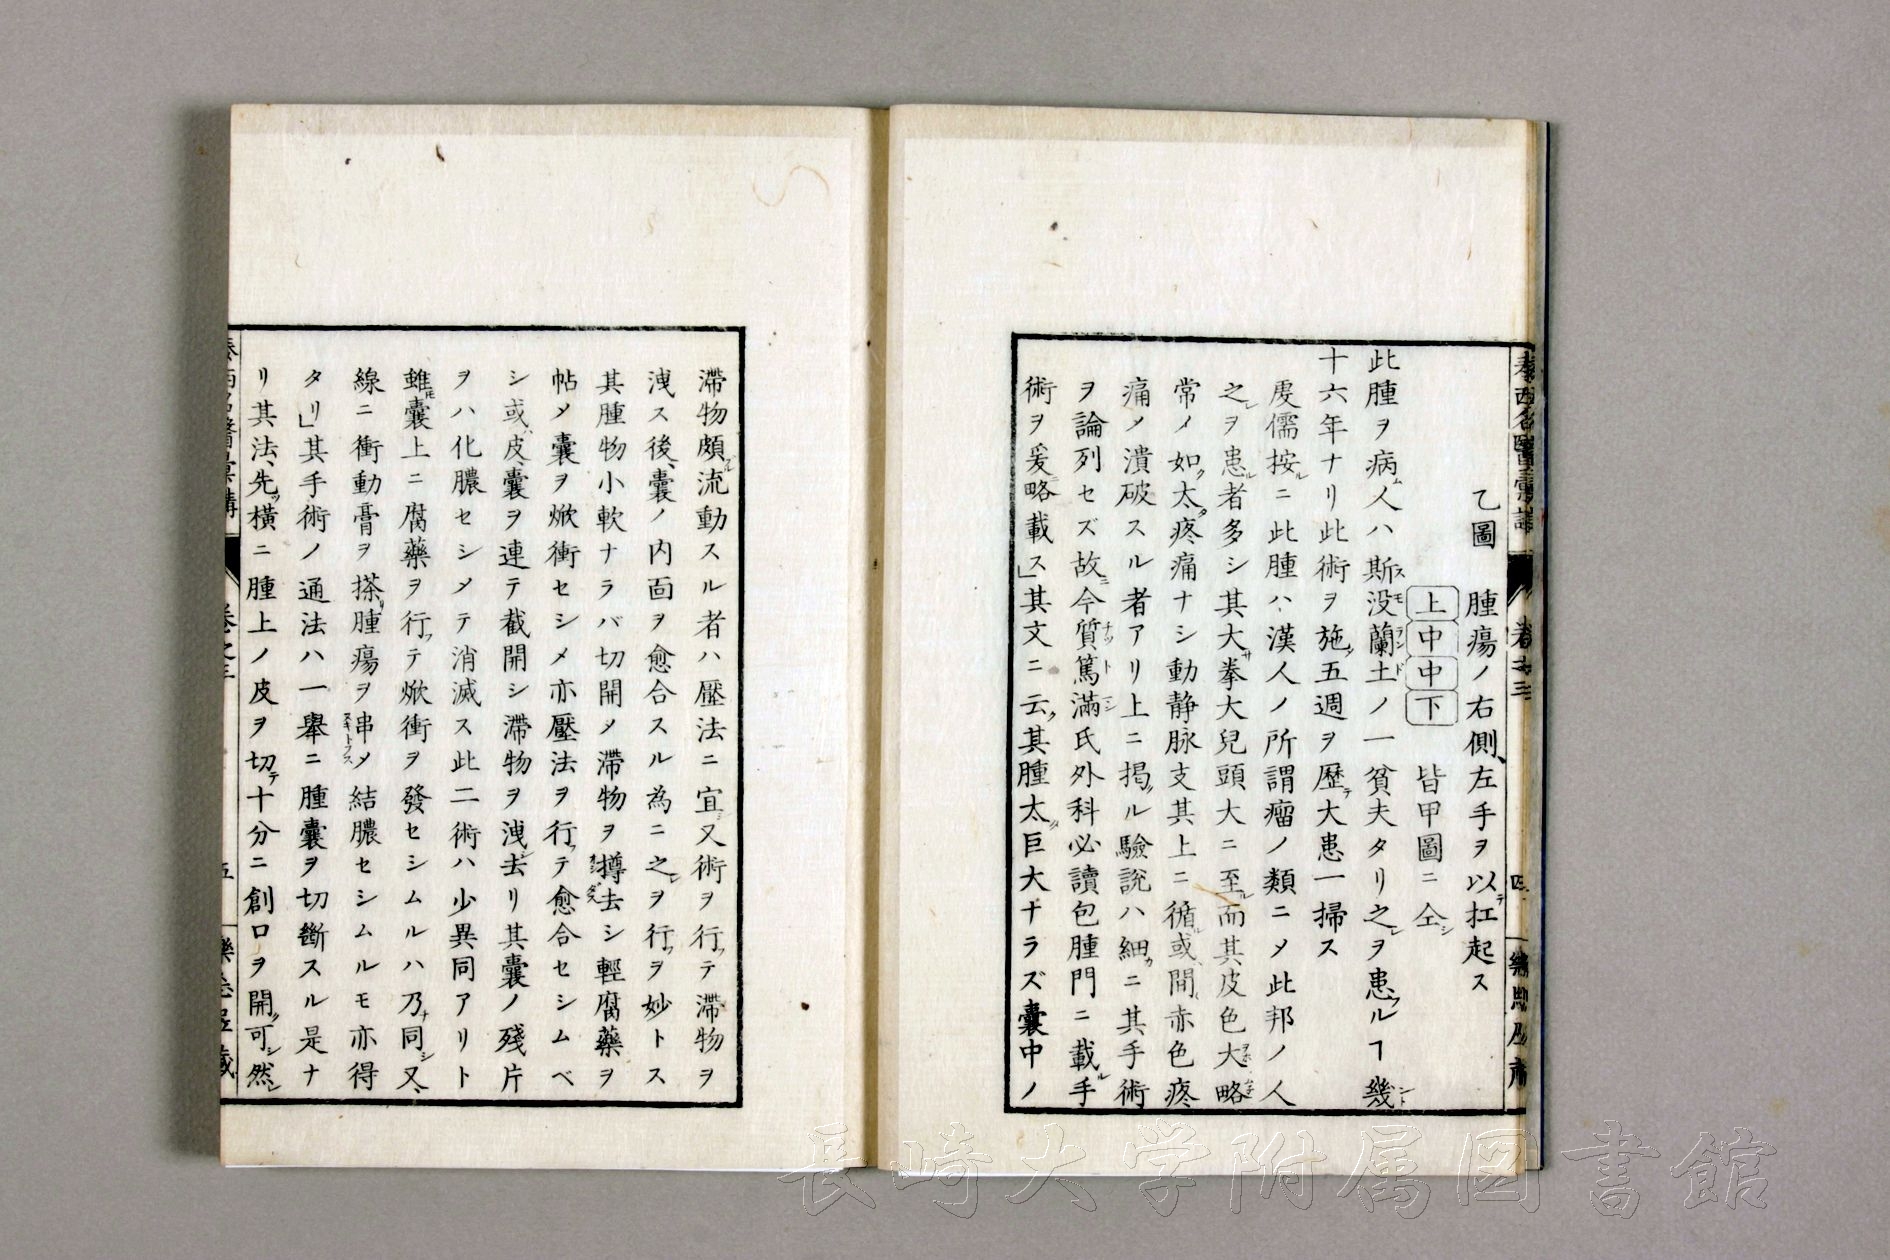 乙圖　腫瘍ノ右側、左手ヲ以テ扛起ス
上中中下　皆甲圖ニ仝シ
此腫ヲ病ム人ハ斯没蘭土ノ一貧夫タリ之レヲ患フルヿ幾ント
十六年ナリ此術ヲ施シ五週ヲ歴テ大患一掃ス
虔儒按ルニ此腫ハ漢人ノ所謂瘤ノ類ニメ此邦ノ人
之レヲ患ル者多シ其大サ拳大兒頭大ニ至ル而其皮色大略
常メ如ク太タ疼痛ナシ動静脉支其上ニ循ル或ハ間赤色疼
痛メ潰破スル者アリ上ニ掲グル驗説ハ細カニ其手術
ヲ論列セズ故ニ今質篤満氏外科必讀包腫門ニ載ル手
術ヲ爰ニ略載ス」其文ニ云ク其腫太タ巨大ナラズ囊中ノ
滯物頗ル流動スル者ハ壓法ニ宜シ又術ヲ行ツテ滯物ヲ
洩ス後、囊ノ内面ヲ愈合スル為ニ之レヲ行フヲ妙トス
其腫物小軟ナラバ切開メ滯物ヲ撙去シ輕腐藥ヲ
帖メ囊ヲ焮衝セシメ亦壓法ヲ行ツテ愈合セシムベ
シ或ハ皮、囊ヲ連テ截開シ滯物ヲ洩シ去リ其囊ノ殘片
ヲハ化膿セシメテ消滅ス此二術ハ少異同アリト
雖モ囊上ニ腐藥ヲ行フテ焮衝ヲ發セシムルハ乃チ同シ又、
線ニ衝動膏ヲ搽リ腫瘍ヲ串メ結膿セシムルモ亦得
タリ」其手術ノ通法ハ一舉ニ腫囊ヲ切斷スル是ナ
リ其法、先ツ横ニ腫上ノ皮ヲ切テ十分ニ創口ヲ開クべシ然レ
泰西名醫彙講
卷之三
四
五
長崎大学附属図書館